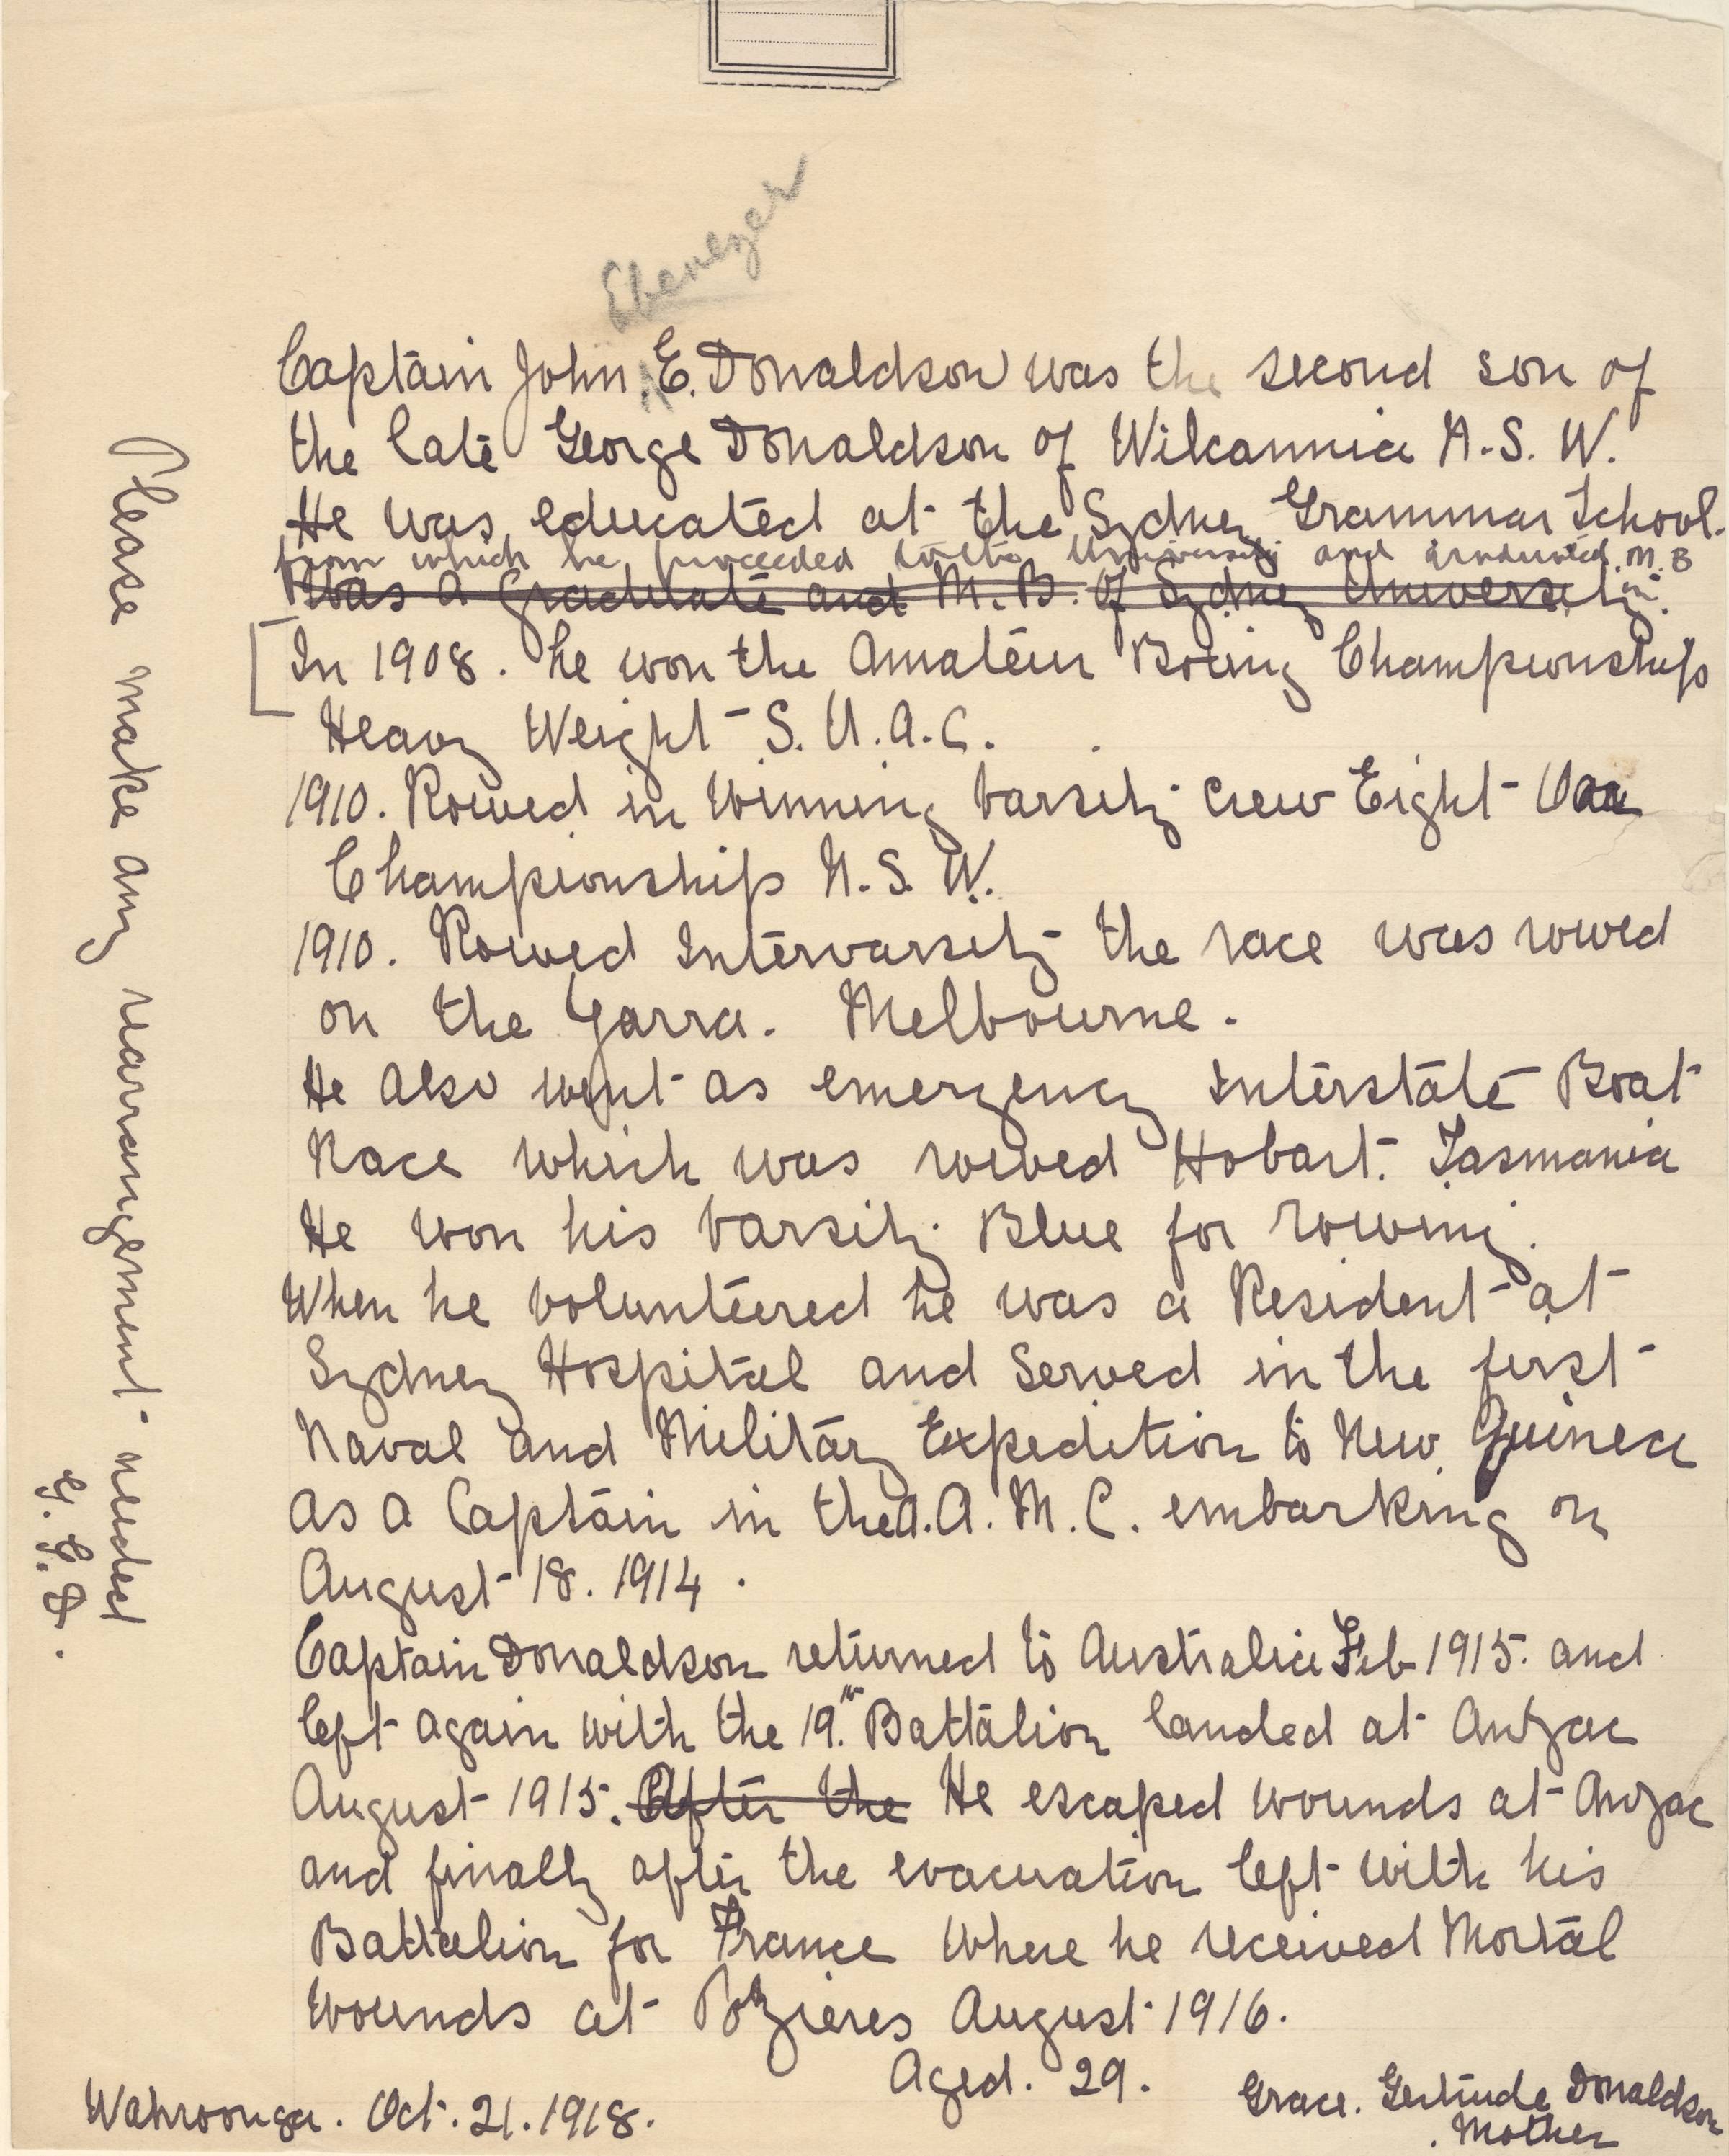 Ebenezer
Captain John E. Donaldson was the second son of
the late George Donaldson of Wilcannia N.S.W.
He was educated at the Sydney Grammar School.
from which he proceeded to the University and graduated M.B
Was a Graduate and M.B. of Sydney University. in
In 1908. he won the Amateur Boxing Championship
Heavy Weight S.U.A.C.
1910. Rowed in Winning Varsity crew Eight Oar
Championship N.S.W.
1910. Rowed Intervarsity the race was rowed
on the Yarra. Melbourne.
He also went as emergency Interstate Boat
Race which was rowed Hobart. Tasmania
He won his Varsity Blue for rowing.
When he volunteered he was a Resident at
Sydney Hospital and Served in the first
Naval and Military Expedition to New Guinea
as a Captain in the A.A.M.C. embarking on
August 18. 1914.
Captain Donaldson returned to Australia Feb 1915. and
left again with the 19.th Battalion landed at Anzac
August 1915. After the He escaped wounds at Anzac
and finally after the evacuation left with his
Battalion for France where he received Mortal
Wounds at Pozieres August 1916.
Aged. 29.
Grace. Gertrude Donaldson
Mother
Wahroonga. Oct. 21. 1918.
Please make any rearrangement needed
G. G. D.